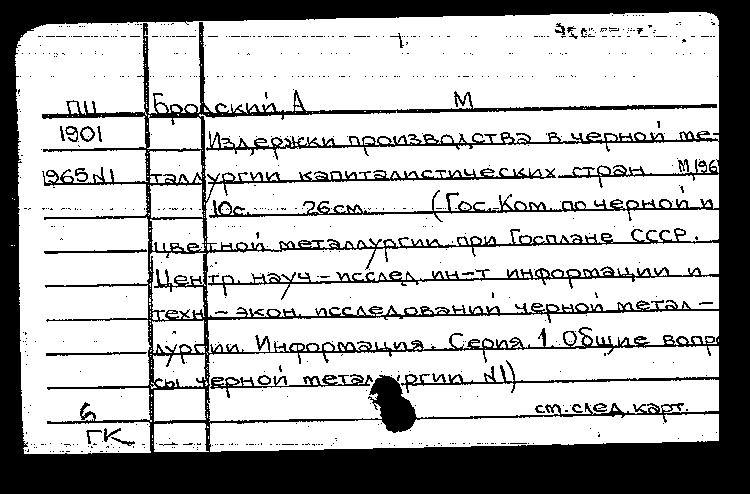 ПЦ Бродский, А М
1901 Издержки производства в черной ме-
1965 N1 таллургии капиталистических стран М, 196
10с. 26см. (Гос. Ком. по черной и
цветной металлургии при Госплане СССР.
Центр. науч-исслед. ин-т информации и
техн-экон. исследований черной метал-
лургии. Информация. Серия. 1. Общие вопро
сы черной металлургии. N1)
6 ст. след. карт.
ГК